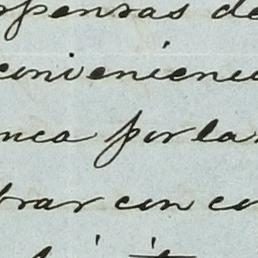 spensas de
convenienci
nca por la
brar con co